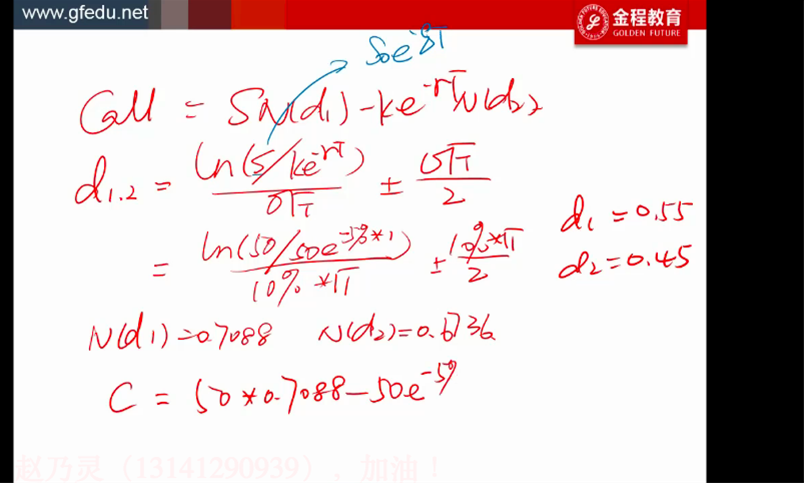 www.gfedu.net
金程教育
GOLDEN FUTURE
S₀e^-δT
Call = SN(d₁) - Ke^-rT N(d₂)
d₁.₂ = ln(S/Ke^-rT) / σ√T ± σ√T / 2
= ln(50/50e^-5%*1) / 10%*√1 ± 10%*√1 / 2
d₁ = 0.55
d₂ = 0.45
N(d₁) = 0.7088 N(d₂) = 0.6736
C = 50*0.7088 - 50e^-5%
赵乃灵（13141290939），加油！